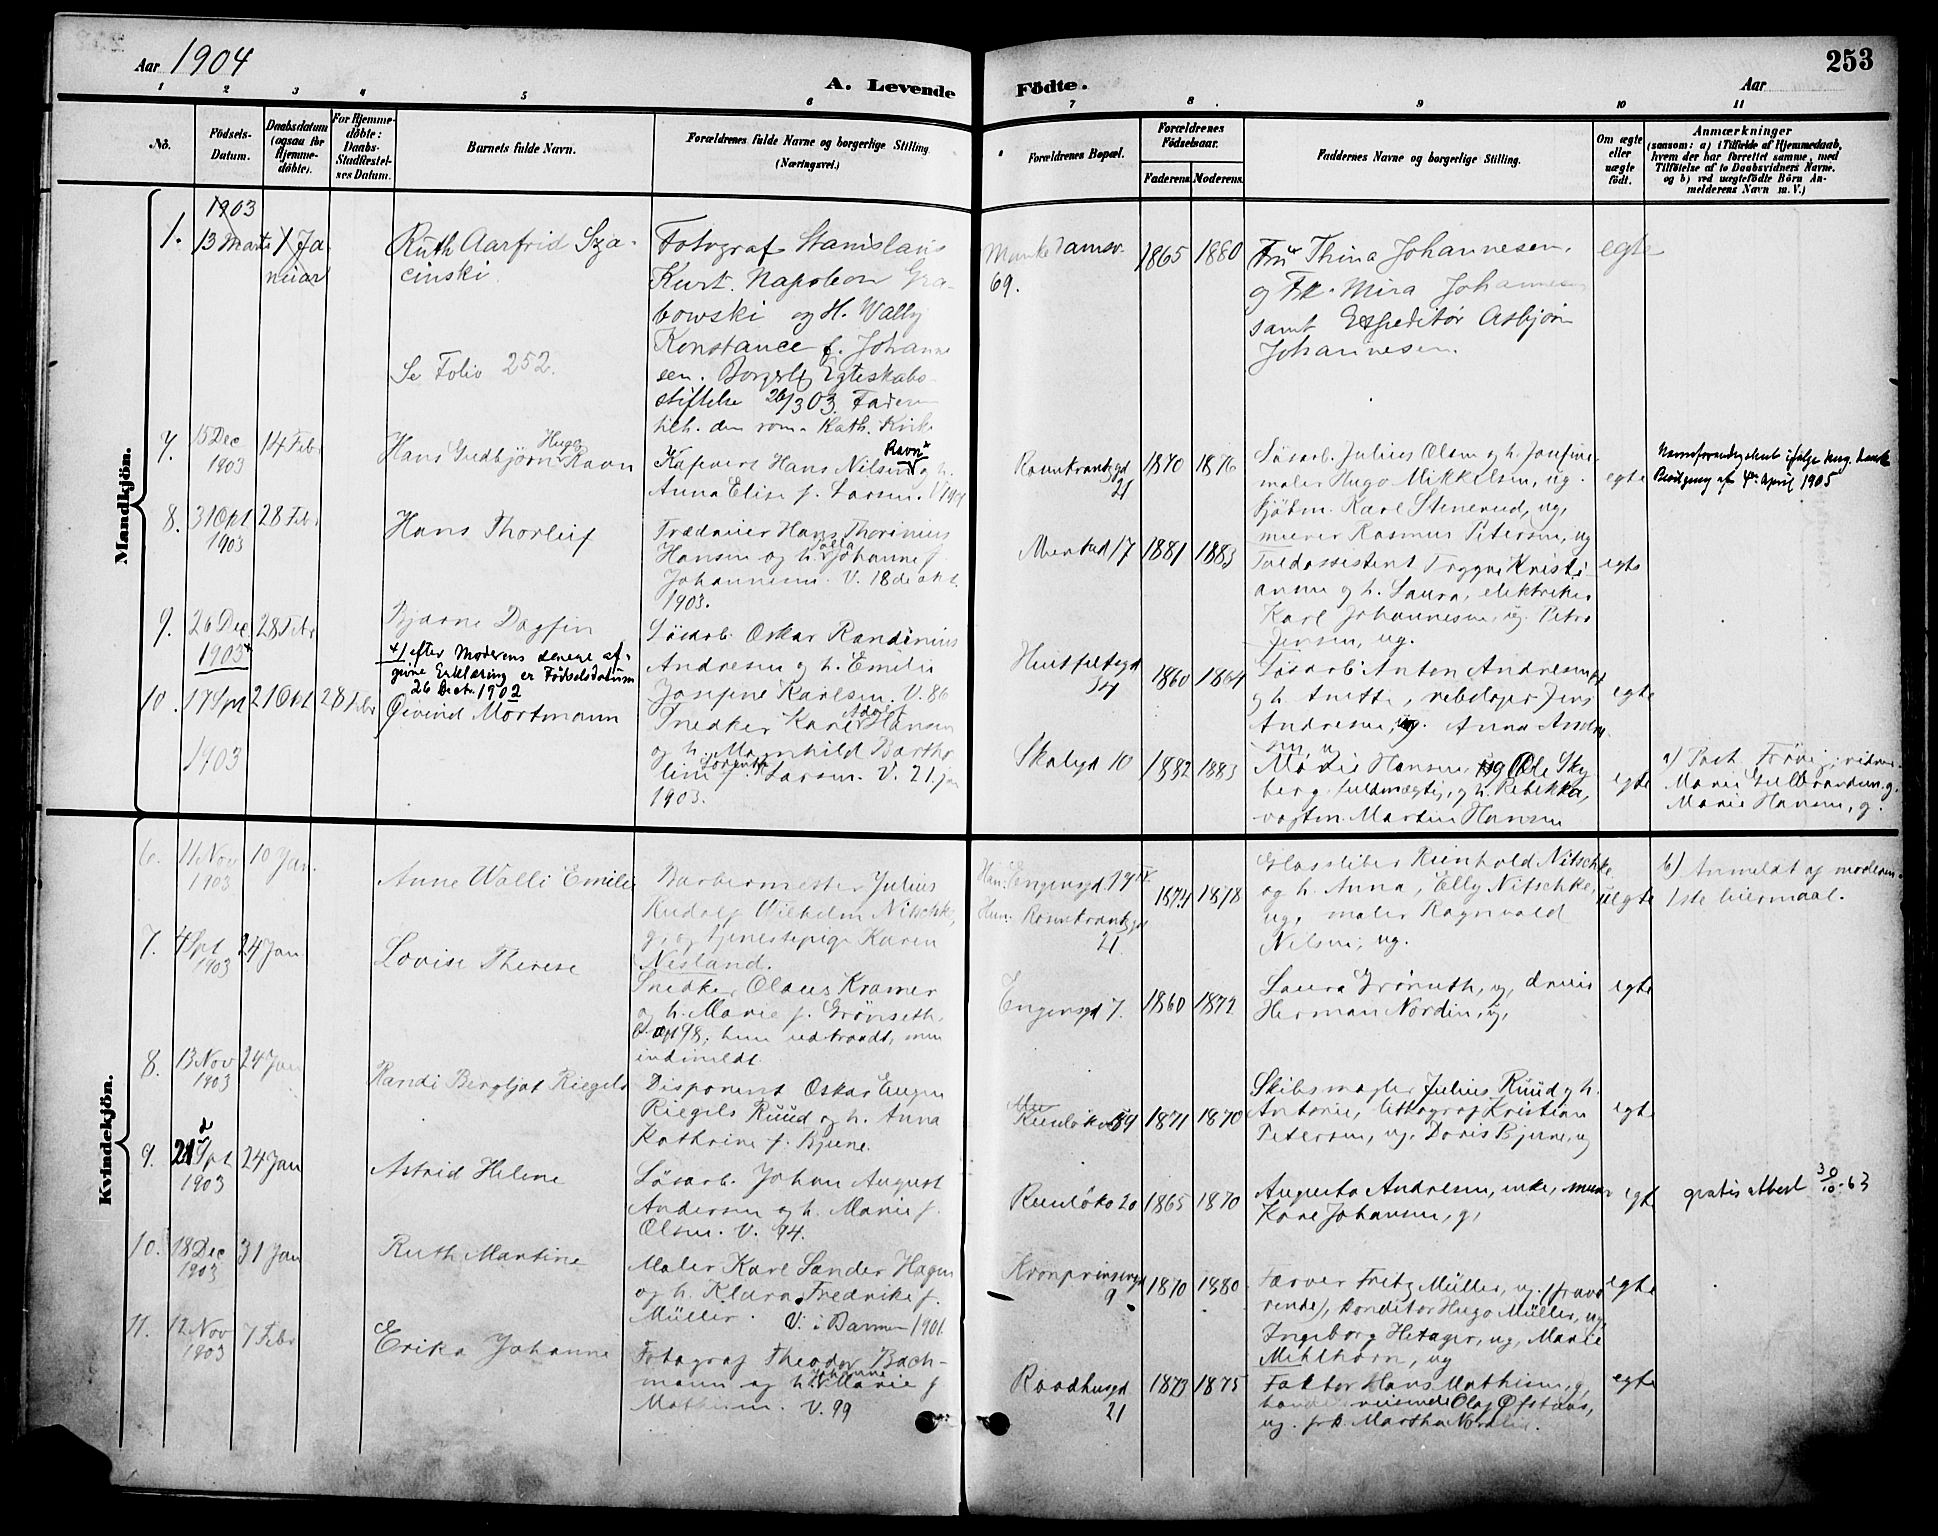 Aar 1904
A. Levende Födte.
Aar
253
1 2 3 4 5 6 7 8 9 10 11
No.
Födsels-
Datum.
Daabsdatum
(ogsaa for
Hjemme-
döbte).
For Hjemme-
döbte:
Daabs-
Stadfæstel-
ses Datum.
Barnets fulde Navn.
Forældrenes fulde Navne og borgerlige Stilling
(Næringsvei.)
Forældrenes Bopæl.
Forældrenes
Födselsaar.
Faderens Moderens
Faddernes Navne og borgerlige Stilling.
Om ægte
eller
uægte
födt.
Anmærkninger
(saasom: a) i Tilfælde af Hjemmedaab,
hvem der har forrettet samme, med
Tilföielse af to Daabsvidners Navne.
og b) ved uægtefödte Börn An-
melderens Navn m. V.)
Mandkjön.
1.
1903
13 Marts
1 Ja-
nuar
Ruth Aarfrid Sza-
cinski.
Se Folio 252.
Fotograf Stanislaus
Kurt. Napoleon Gra-
bowski og H. Wally
Konstance f. Johanne
sen. Borgerlig Egteskabs-
stiftelse 26/3 03. Faderen
tilh. den rom. Kath. Kirke
Munkedamsv.
69.
1865 1880
Fru Thina Johannesen.
og Frk. Mira Johannesen
samt Expeditör Asbjörn
Johannesen.
egte
7.
15 Dec
1903
14 Febr
Hans Gudbjörn Hugo Ravn
Hans Nilsen Ravn og h.
Anna Elise f. Larsen. V.
Rosenkrantzgd
21
1870 1876
Løsarb. Julius Olsen og h. Josefine
maler Hugo Mikkelsen, ug.
Kjöbm. Karl Stenerud, ug,
murer Rasmus Petersen, ug
egte
Navneforandring ifølge kng.
Bevilgning af 4de April 1905
8.
31 Okt
1903
28 Febr
Hans Thorleif
Hans Thorinius
Hansen og h. Johanne f.
Johannesen. V. 18de okt.
1903.
17
1881 1883
Toldassistent Trygve Kristi-
ansen og h. Laura, elektriker
Karl Johannesen, ug. Petra
Jensen, ug.
egte
9.
26 Dec
1903
28 Febr
Bjarne Dagfin
x) efter Moderens senere af-
givne Erklæring er Födselsdatum
26 Decbr. 1902
Løsarb. Oskar Randinius
Andresen og h. Emilie
Josefine Karlsen. V. 86
Huitfeldtsgd
34
1860 1864
Løsarb. Anton Andresen
og h. Anette, rebslager Jens
Andresen, ug. Anna Andre
sen, ug
egte
10.
17 Sept
1903
21 Okt
28 Febr
Öivind Mortmann
Snedker Karl Adolf Hansen
og h. Magnhild Bartho
line f. Larsen. V. 21. jan
1903.
Skolegd 10
1882 1883
Marie Hansen, ug Ole Sky
berg fuldmægtig, og h. Rebekka,
vogtm. Martin Hansen
egte
a) Past. Frövig; vidner
Marie
Marie Hansen, g.
Kvindekjön.
6.
11 Nov
1903
10 Jan.
Anne Walli Emilie
Barbermester Julius
Rudolf Wilhelm Nitschke,
g, og tjenestepige Karen
Nesland.
Han: Engensgd 19 IV.
Hun: Rosenkrantzgd
21
1874 1878
Glassliber Reinhold Nitschke
og h. Anna, Elly Nitschke,
ug, maler Ragnvald
Nilsen, ug.
uegte
b) Anmeldt af moderen.
1ste leiermaal.
7.
4 Spt
1903
24 Jan
Lovise Therese
Snedker Olaus Kramer
og h. Marie f. Grönseth.
V. 98; hun udtraadt, men
indmeldt.
Engensgd 7.
1860 1872
Laura Grönseth, ug, dreier
Herman Nordin, ug,
egte
8.
13 Nov
1903
24 Jan
Randi Bergljot Riegels
Disponent Oskar Eugen
Riegels Ruud og h. Anna
Kathrine f. Bjerre.
59
1871 1870
Skibsmægler Julius Ruud og h.
Antonie, lithograf Kristian
Petersen, ug. Doris Bjerre, ug
egte
9.
21 Spt
1903
24 Jan
Astrid Helene
Løsarb. Johan August
Andersen og h. Marie f.
Olsen. V. 94.
Ruseløkv 20
1865 1870
Augusta Andresen, enke, murer
Karl Johansen, g,
egte
gratis attest 30/10-63
10.
18 Dec
1903
31 Jan
Ruth Martine
Maler Karl Sander Hagen
og h. Klara Fredrikke f.
Müller. V. i Barmen 1901.
Kronprinsensgd
9
1870 1880
Farver Fritz Müller, ug. (fravæ-
rende), konditor Hugo Müller, ug,
Ingeborg Hetager, ug, Marie
Mehlhorn, ug
egte
11.
12 Nov
1903
7 Febr
Erika Johanne
Fotograf Theodor Bach-
mann og h. Johanne Marie f.
Mathisen. V. 99
Raadhusgd
21
1873 1875
Faktor Hans Mathisen, g,
handelsreisende Olaf Ofstaas,
ug. frk. Martha Nordlie.
egte